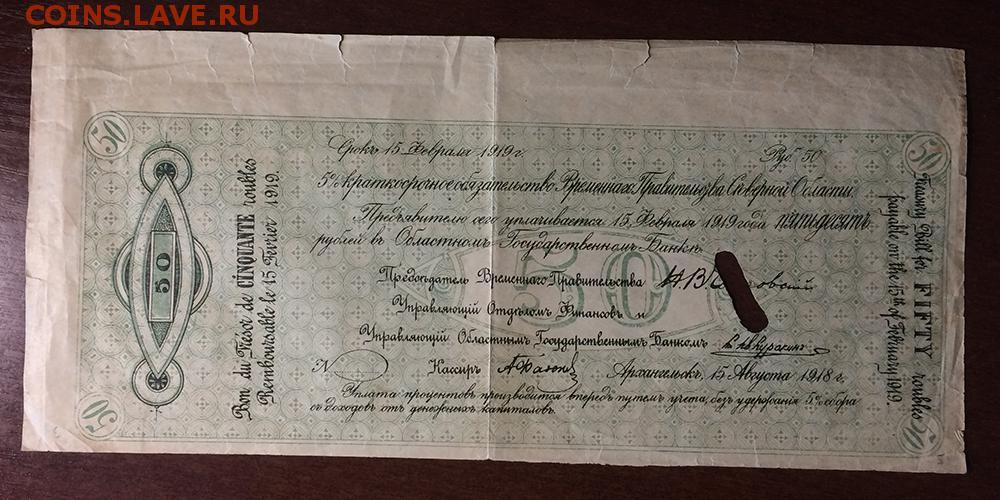 COINS.LAVE.РУ
50
50
Срокъ 15 Февраля 1919 г.
Руб. 50
5% краткосрочное обязательство Временнаго Правительства Сѣверной Области.
Предъявителю сего уплачивается 15 Февраля 1919 года пятьдесятъ
рублей въ Областномъ Государственномъ Банкѣ.
Предсѣдатель Временнаго Правительства
Управляющій Отдѣломъ Финансовъ и
Управляющій Областнымъ Государственнымъ Банкомъ
N
Кассиръ
Архангельскъ, 15 Августа 1918 г.
Уплата процентовъ производится впередъ путемъ учета, безъ удержанія 5% сбора
съ доходовъ отъ денежныхъ капиталовъ.
50
50
50
50
Bon du Trésor de CINQUANTE roubles
Remboursable le 15 Février 1919.
Treasury Bill for FIFTY roubles
payable on the 15th of February 1919.